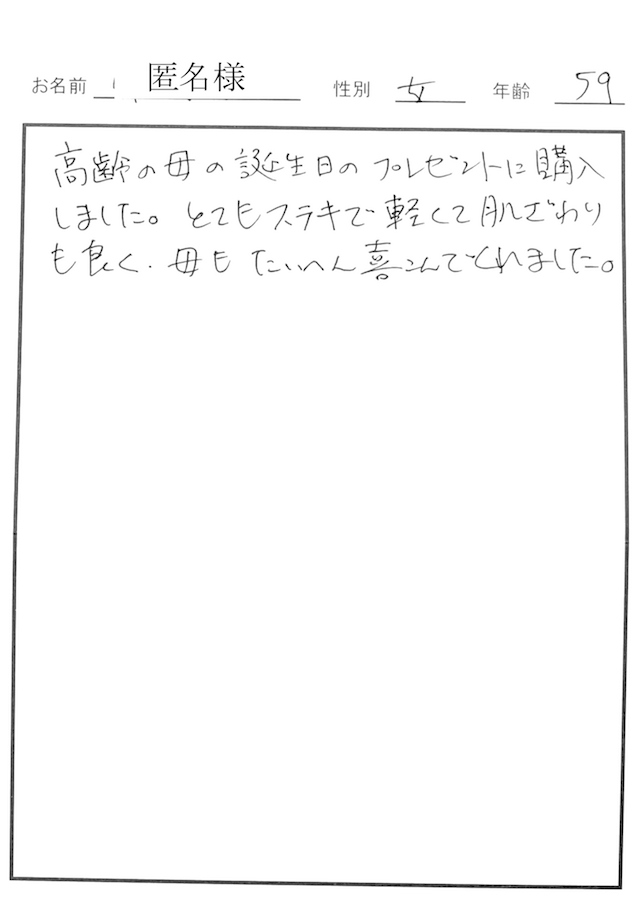 お名前 匿名様 性別 女 年齢 59
高齢の母の誕生日のプレゼントに購入
しました。とてもステキで軽くて肌ざわり
も良く、母もたいへん喜こんでくれました。